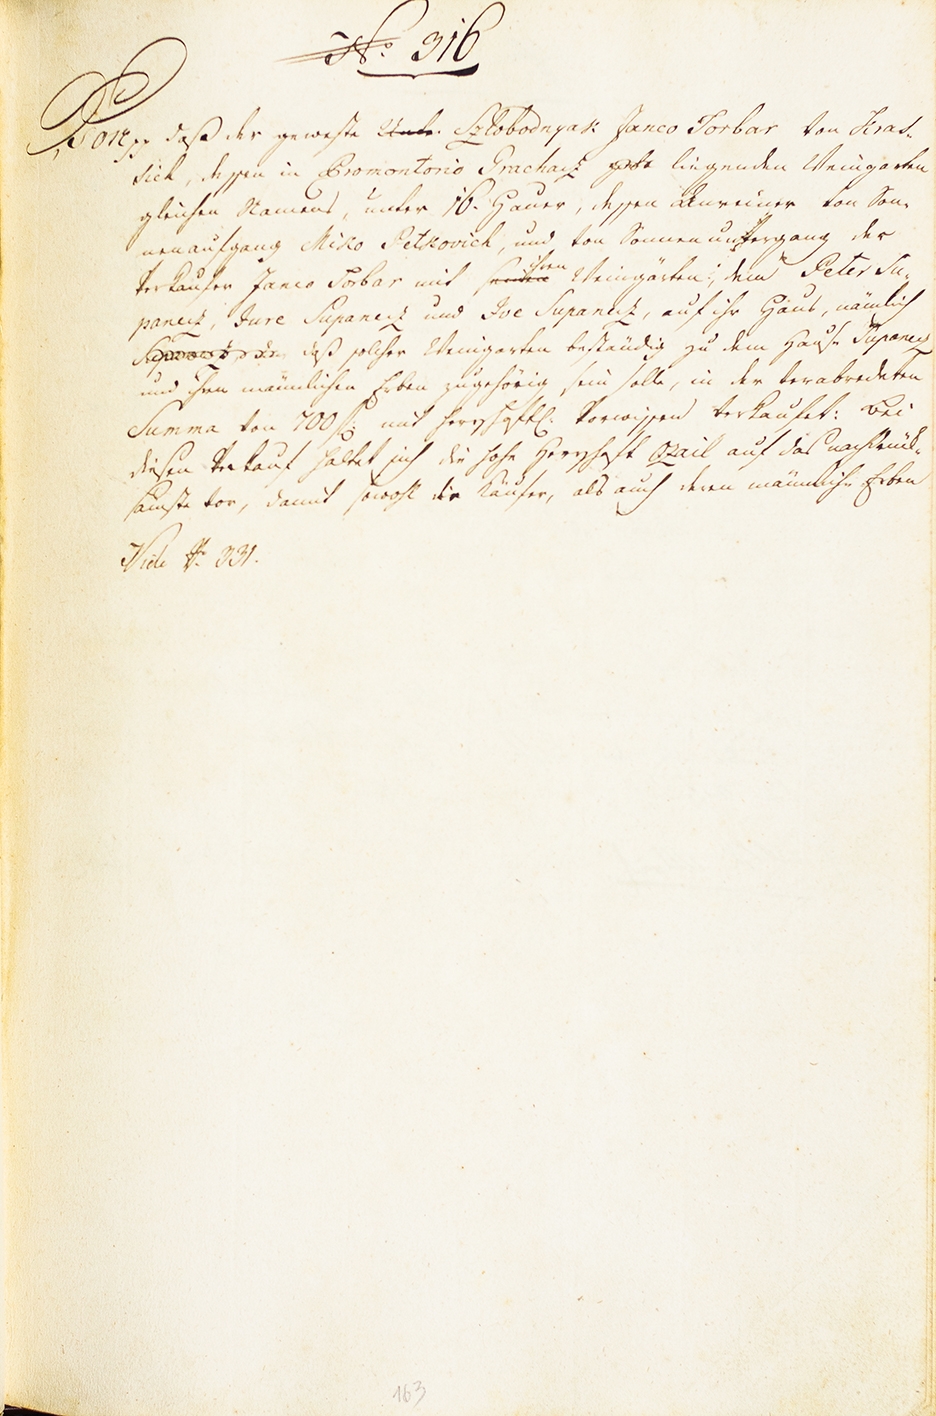 No 316
Von pp daß der geweste Unte. Szlobodnyak Janco Torbar von Kras-
sich, dessen in Promontorio Grachacz liegenden Weingarten
gleichen Namens, unter 16. Hauer, dessen Anreiner von Son-
nenaufgang Miko Petkovich, und von Sonnenuntergang der
Verkaufer Janco Torbar mit ihren Weingärten; dem Peter Su-
panecz, Jure Supanecz und Ive Supanecz, auf ihr Haus, nämlich
daß solcher Weingarten beständig zu dem Hause Supanecz
und ihren männlichen Erben zugehörig sein solle, in der verabredeten
Summa von 700 f. mit herrschftl. Vorwissen verkaufet: Bei
diesen Verkauf haltet sich die hohe Herrschaft Ozail auf das nachdrück-
samste vor, damit sowohl die Käufer, als auch deren männliche Erben
Vide No. 331.
163